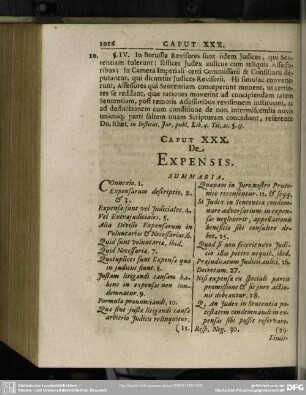 1016 CAPUT XXX.
20. §. IV. In Borussia Revisores sunt iidem Judices, qui Sen-
tentiam tulerunt; scilicet Judex aulicus cum reliquis Assesso-
ribus; In Camera Imperiali certi Commissarii & Consiliarii de-
putantur, qui dicuntur Judices Revisorii. Hi simulac convene-
runt, Assessores qui Sententiam conceperunt monent, ut certio-
res se reddant, quæ rationes moverint ad concipiendam talem
Sententiam, post remotis Assessoribus revisionem instituunt, ac
ad deductionem cum conditione de non immiscendis novis
unicuique parti saltem unam Scripturam concedunt, referente
Dn. Rhet. in Institut. Jur. publ. Lib. 4. Tit. 21. §. 13.
CAPUT XXX.
De
EXPENSIS.
SUMMARIA.
COnnexio. 1.
Expensarum descriptio. 2.
& 3.
Expensæ sunt vel Judiciales. 4.
Vel Extrajudiciales. 5.
Alia Divisio Expensarum in
Voluntarias & Necessarias. 6.
Quid sunt voluntaria, ibid.
Quid Necessaria. 7.
Quotuplices sunt Expensæ quæ
in judiciis fiunt. 8.
Justam litigandi causam ha-
bens in expensas non con-
demnatur. 9.
Formula pronunciandi. 10.
Quæ sint justæ litigandi causæ
arbitrio Judicis relinquitur.
11.
Quænam in Jure nostro Prute-
nico recenseantur. 12. & seqq.
Si Judex in Sententia condem-
nare adversarium in expen-
sas neglexerit, appellationis
beneficio sibi consulere de-
bet. 25.
Quod si non fecerit novo Judi-
cio illas petere nequit, ibid.
Præjudicatum Judicii aulici. 26.
Decretum. 27.
Nisi expensæ ex speciali partis
promissione & sic jure actio-
nis debeantur. 28.
Q. An Judex in Sententia po-
testatem condemnandi in ex-
pensas sibi possit reservare.
Resp. Neg. 30. (29.
Limit-